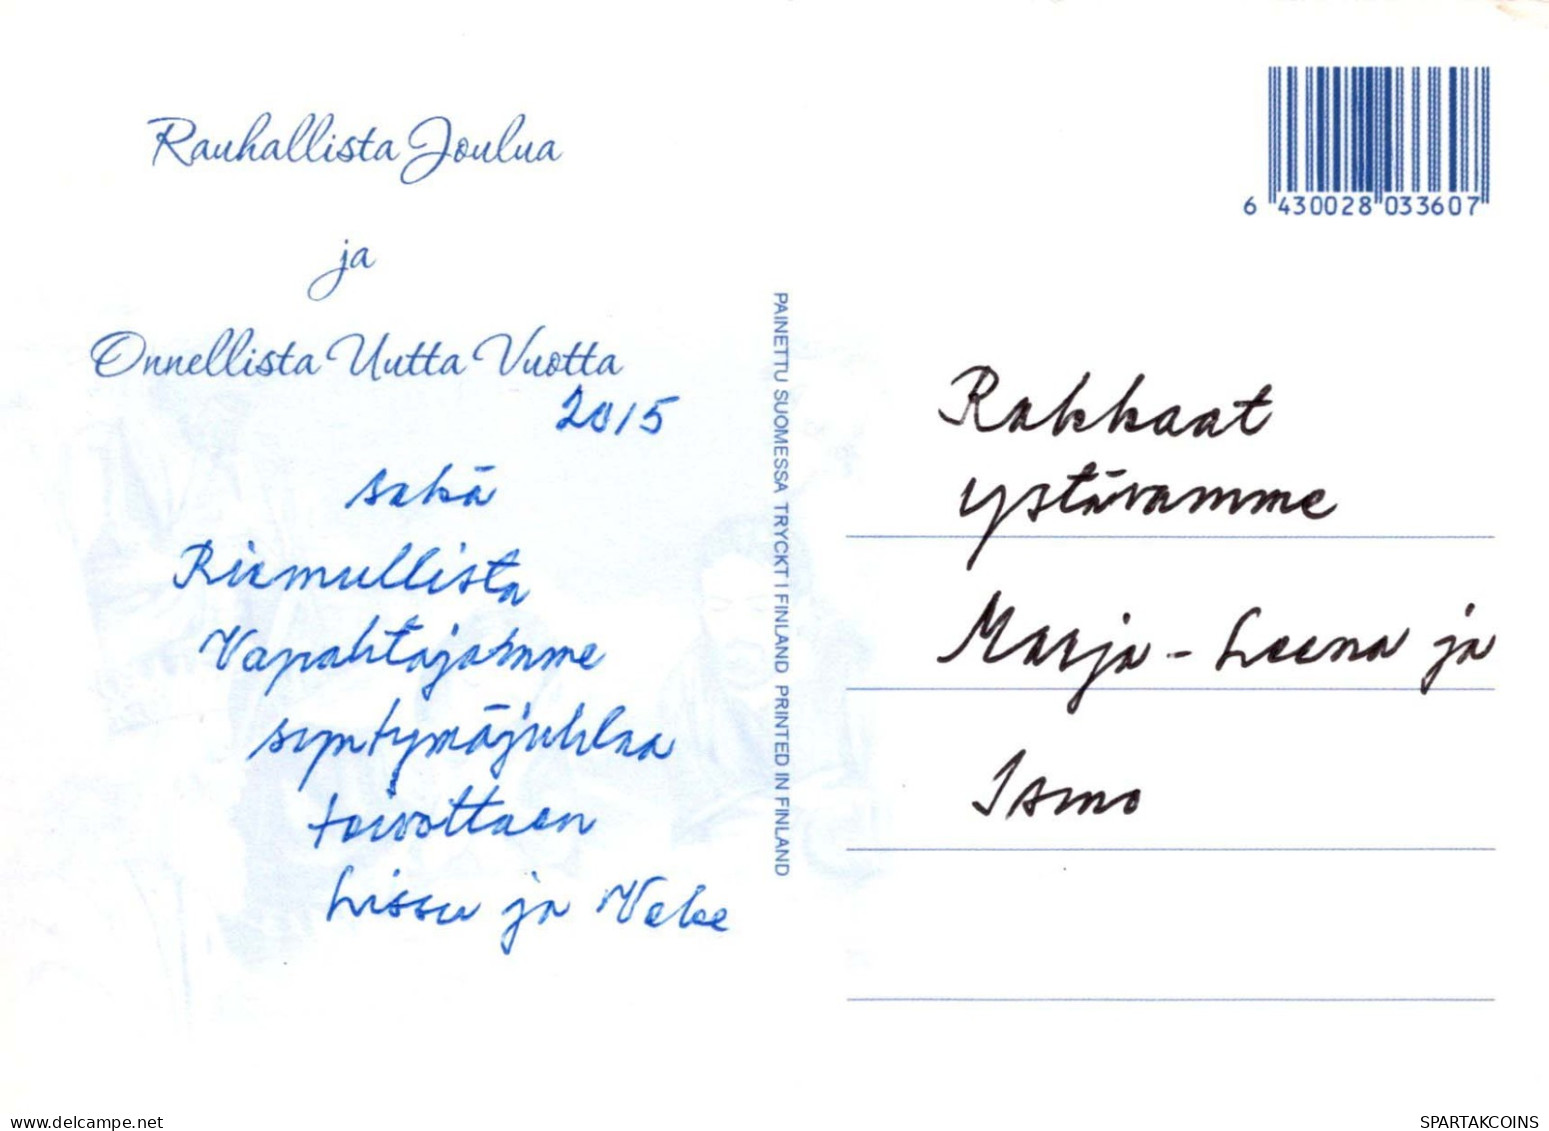 Rauhallista Joulua
ja
Onnellista Uutta Vuotta
2015
sekä
Riemullista
Vapahtajamme
syntymäjuhlaa
toivottaen
Lissu ja Veke
PAINETTU SUOMESSA TRYCKT I FINLAND PRINTED IN FINLAND
6 430028 033607
Rakkaat
ystävämme
Marja-Leena ja
Ismo
www.delcampe.net
SPARTAKCOINS